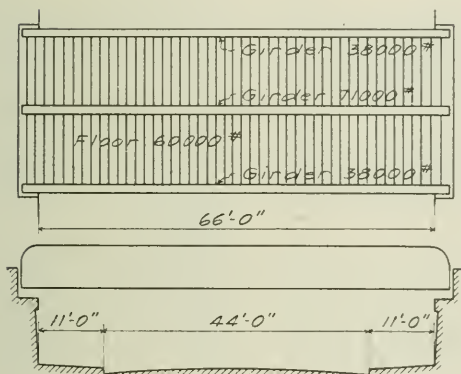 Girder 38000#
Girder 71000#
Floor 60000#
Girder 38000#
66'-0"
11'-0" 44'-0" 11'-0"